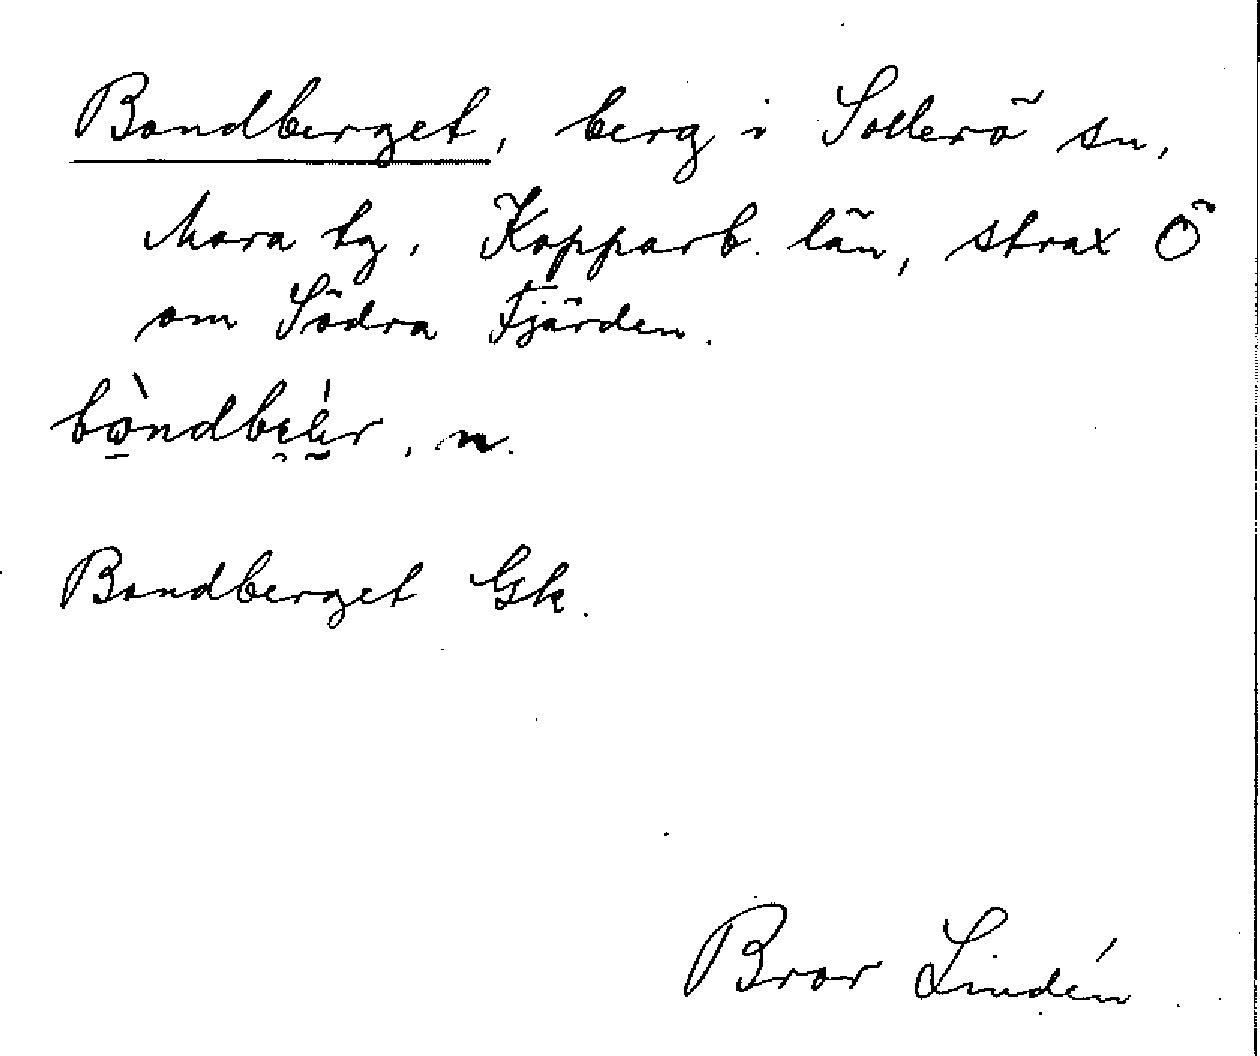 Bondberget, berg i Sollerö sn,
Mora tg. Kopparb. län, strax Ö
om Södra Fjärden.
n.
Bondberget Gk.
Bror Lindén